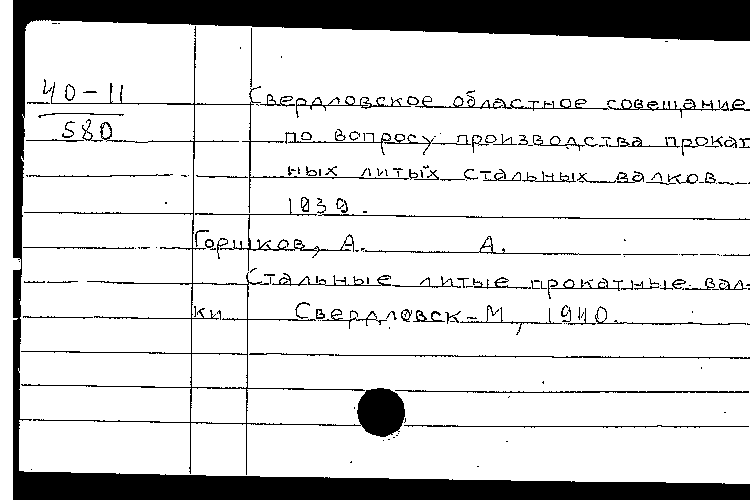 40-11
580
Свердловское областное совещание
по вопросу производства прокат
ных литых стальных валков
1939.
Горшков, А. А.
Стальные литые прокатные вал-
ки Свердловск-М, 1940.